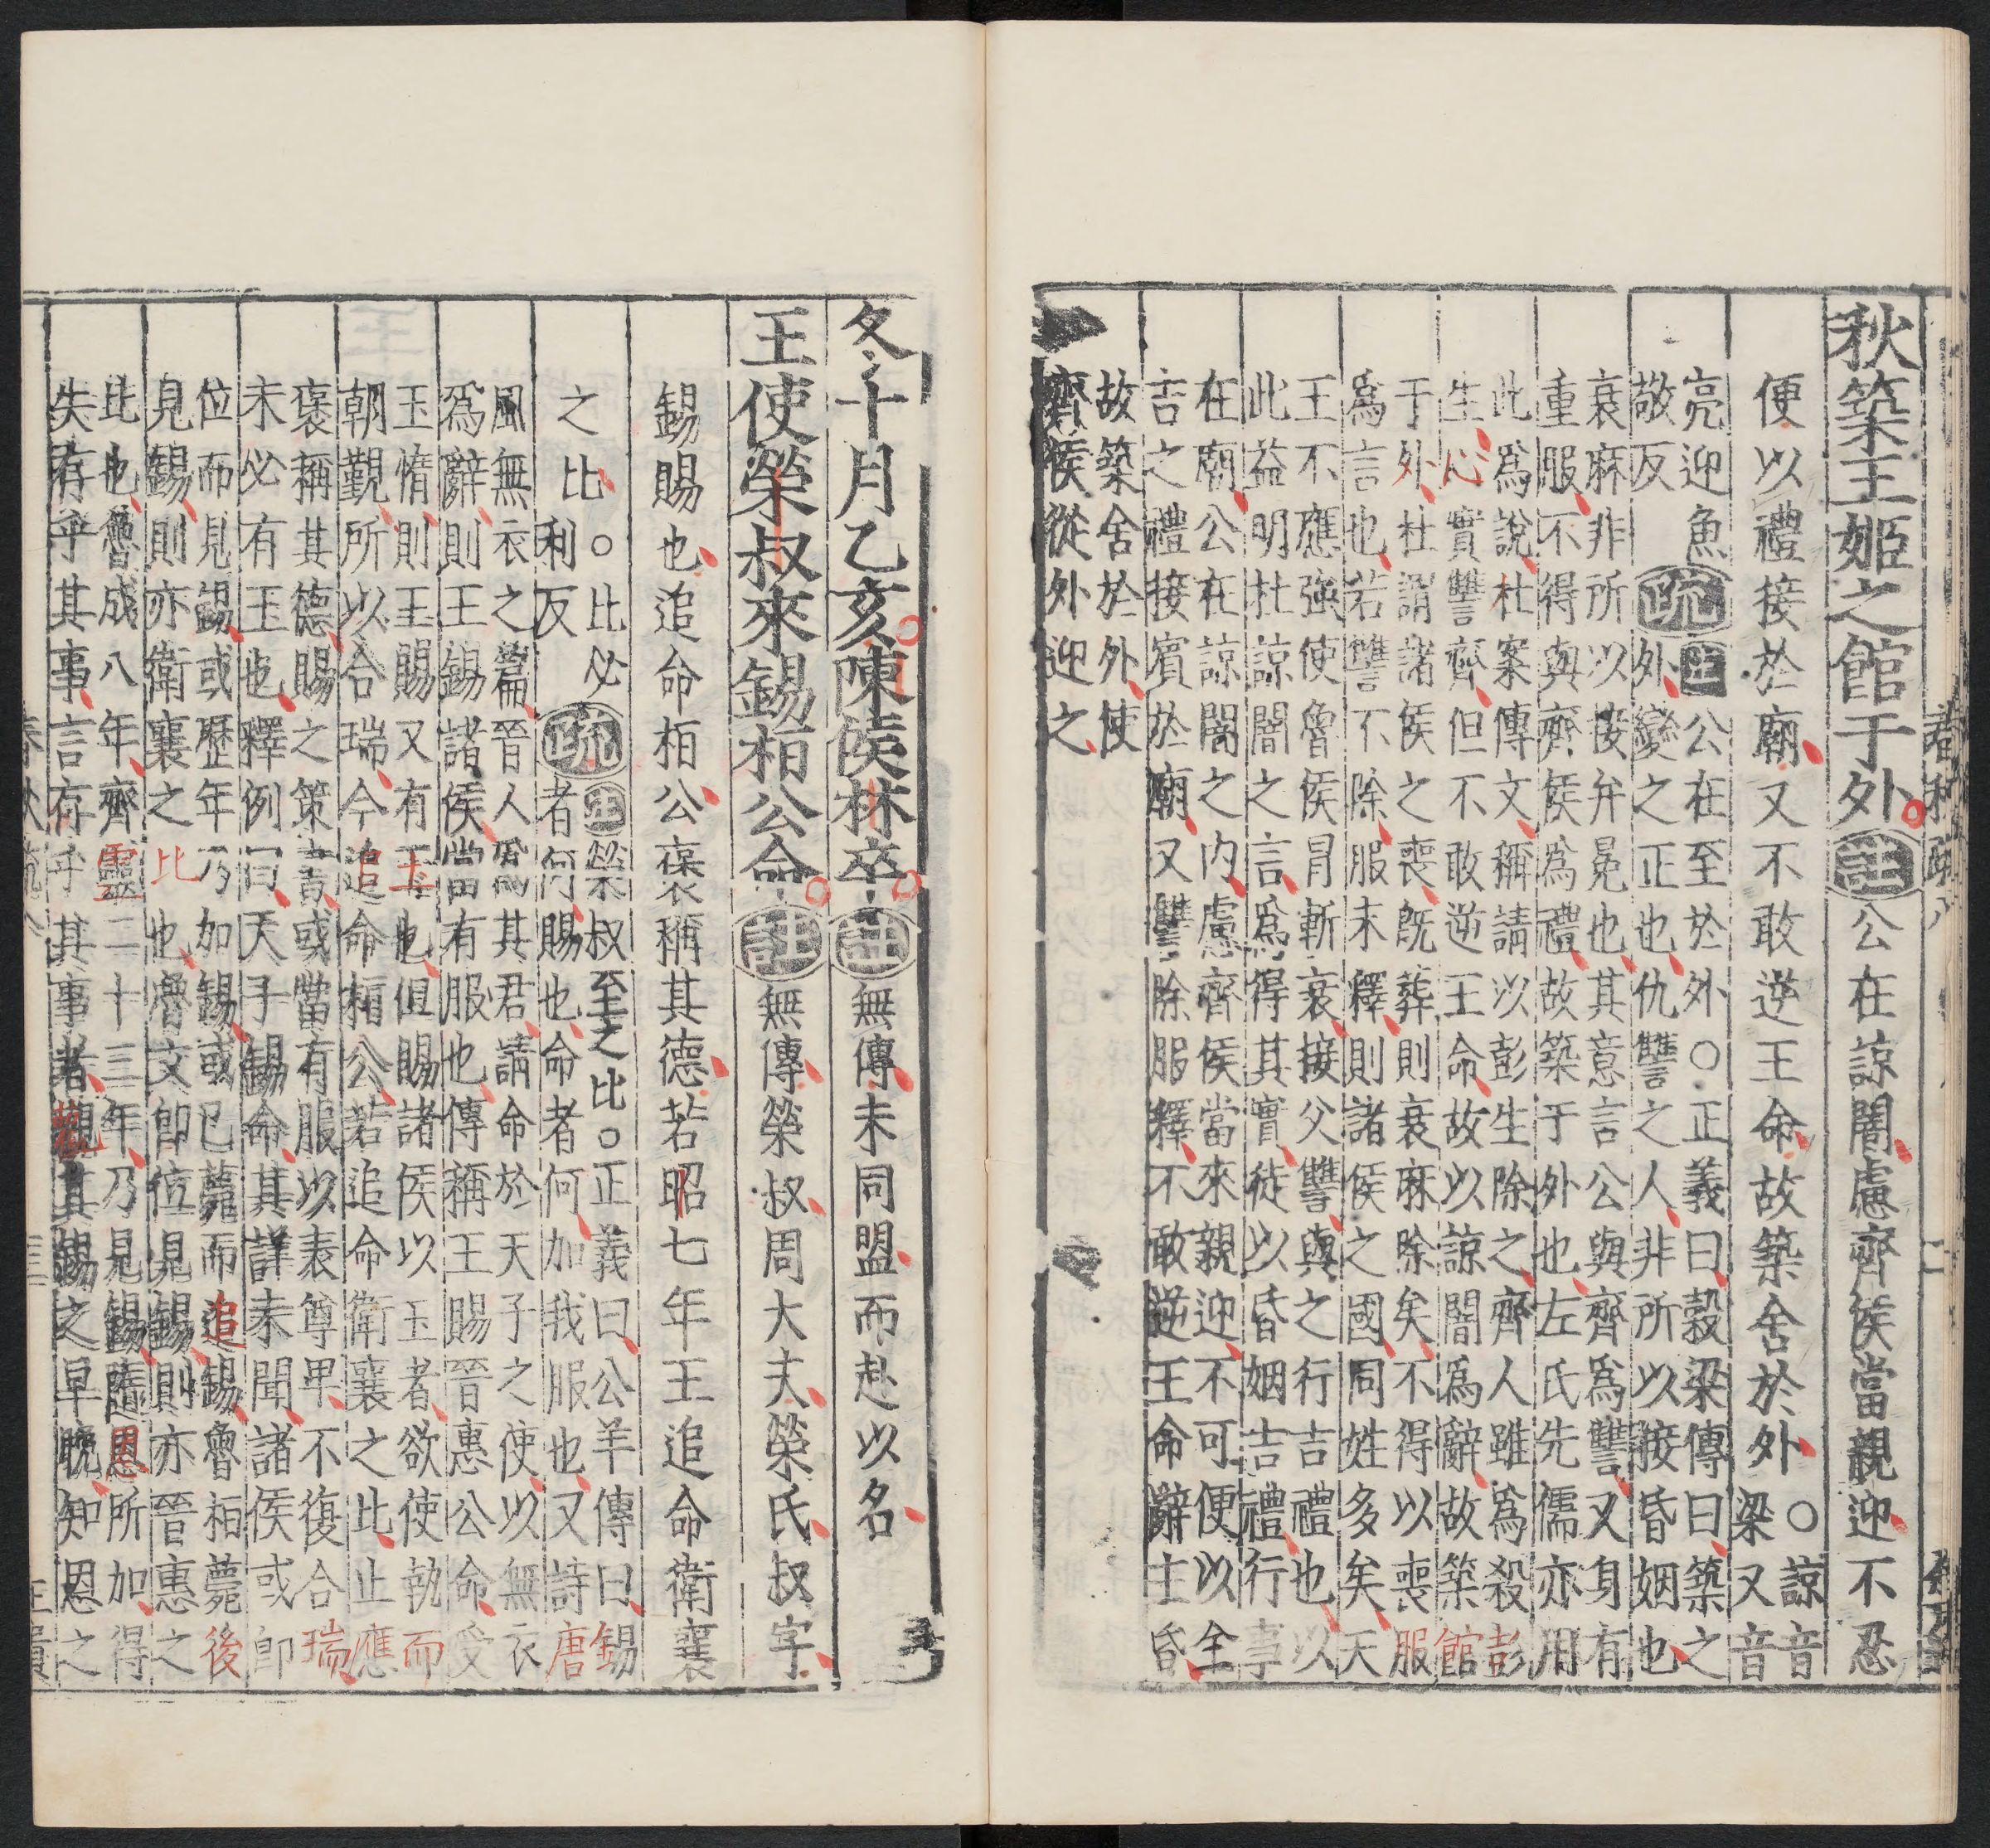 秋築王姬之館于外註公在諒闇慮齊侯當親迎不忍
便以禮接於廟又不敢逆王命故築舍於外○諒音
梁又音
亮迎魚
敬反
疏注公在至於外○正義曰穀梁傳曰築之
外變之正也仇讐之人非所以接昏姻也
衰麻非所以接弁冕也其意言公與齊爲讐又身有
重服不得與齊侯爲禮故築于外也左氏先儒亦用
此爲說杜案傳文稱請以彭生除之齊人雖爲殺彭
生心實讐齊但不敢逆王命故以諒闇爲辭故築館
于外杜謂諸侯之喪旣葬則衰麻除矣不得以喪服
爲言也若讐不除服未釋則諸侯之國同姓多矣天
王不應強使魯侯冒斬衰接父讐與之行吉禮也以
此益明杜諒闇之言爲得其實徒以昏姻吉禮行事
在廟公在諒闇之内慮齊侯當來親迎不可便以全
吉之禮接賓於廟又讐除服釋不敢逆王命辭主昏
故築舍於外使
齊侯從外迎之
冬十月乙亥陳侯林卒註無傳未同盟而赴以名
王使榮叔來錫桓公命註無傳榮叔周大夫榮氏叔字
錫賜也追命桓公褒稱其德若昭七年王追命衛襄
之比○比必
利反
疏注榮叔至之比○正義曰公羊傳曰錫
者何賜也命者何加我服也又詩唐
風無衣之篇晉人爲其君請命於天子之使以無衣
爲辭則王錫諸侯當有服也傳稱王賜晉惠公命受
玉惰則王賜又有玉也但賜諸侯以玉者欲使執而
朝覲所以合瑞今追命桓公若追命衛襄之比止應
褒稱其德賜之策書或當有服以表尊卑不復合瑞
未必有玉也釋例曰天子錫命其詳未聞諸侯或即
位而見錫或歷年乃加錫或已薨而追錫魯桓薨後
見錫則亦衛襄之比也魯文即位見錫則亦晉惠之
比也魯成八年齊靈二十三年乃見錫隨恩所加得
失有乎其事言存乎其事者觀其錫之早晚知恩之